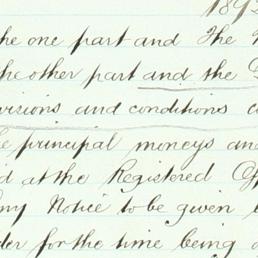 189
the one part and The
the other part and the
visions and conditions
the principal moneys and
d at the Registered Off
any Notice to be given
der for the time being